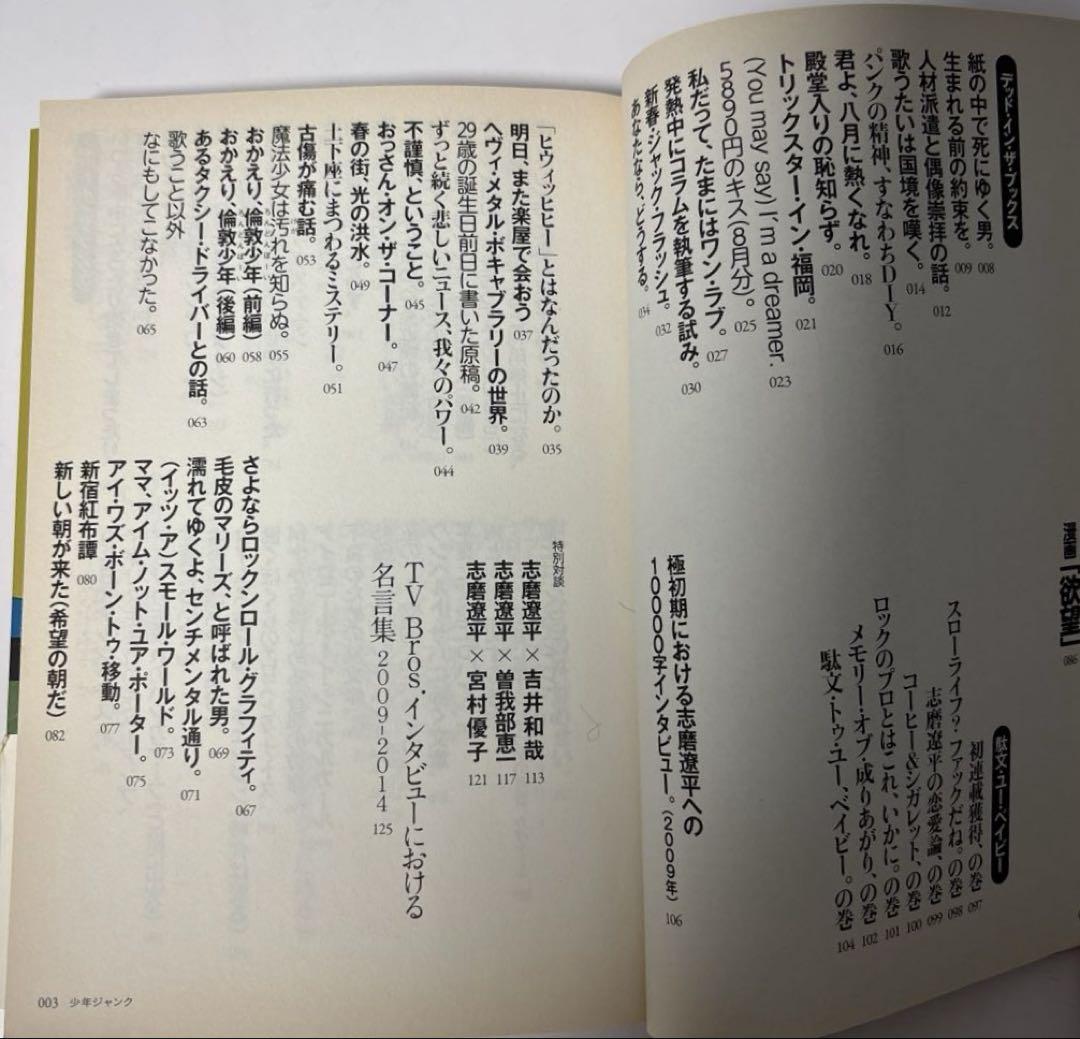 デッド・イン・ザ・ブックス
紙の中で死にゆく男。 008
生まれる前の約束を。 009
人材派遣と偶像崇拝の話。 012
歌うたいは国境を嘆く。 014
パンクの精神、すなわちDIY。 016
君よ、八月に熱くなれ。 018
殿堂入りの恥知らず。 020
トリックスター・イン・福岡。 021
(You may say) I'm a dreamer. 023
5890円のキス(8月分)。 025
私だって、たまにはワン・ラブ。 027
発熱中にコラムを執筆する試み。 030
新春・ジャック・フラッシュ。 032
あなたなら、どうする。 034
漫画「欲望」 086
駄文・ユー・ベイビー
初連載獲得、の巻 097
スローライフ?・ファックだね。の巻 098
志磨遼平の恋愛論、の巻 099
コーヒー&シガレット、の巻 100
ロックのプロとはこれ、いかに。の巻 101
メモリー・オブ・成りあがり、の巻 102
駄文・トゥ・ユー、ベイビー。の巻 104
極初期における志磨遼平への
10000字インタビュー。(2009年) 106
「ヒウィッヒヒー」とはなんだったのか。 035
明日、また楽屋で会おう 037
ヘヴィ・メタル・ボキャブラリーの世界。 039
29歳の誕生日前日に書いた原稿。 042
ずっと続く悲しいニュース、我々のパワー。 044
不謹慎、ということ。 045
おっさん・オン・ザ・コーナー。 047
春の街、光の洪水。 049
土下座にまつわるミステリー。 051
古傷が痛む話。 053
魔法少女は汚れを知らぬ。 055
おかえり、倫敦少年(前編) 058
おかえり、倫敦少年(後編) 060
あるタクシー・ドライバーとの話。 063
歌うこと以外
なにもしてこなかった。 065
さよならロックンロール・グラフィティ。 067
毛皮のマリーズ、と呼ばれた男。 069
濡れてゆくよ、センチメンタル通り。 071
(イッツ・ア)スモール・ワールド。 073
ママ、アイム・ノット・ユア・ポーター。 075
アイ・ワズ・ボーン・トゥ・移動。 077
新宿紅布譚 080
新しい朝が来た(希望の朝だ) 082
特別対談
志磨遼平×吉井和哉 113
志磨遼平×曽我部恵一 117
志磨遼平×宮村優子 121
TV Bros.インタビューにおける
名言集 2009-2014 125
003 少年ジャンク